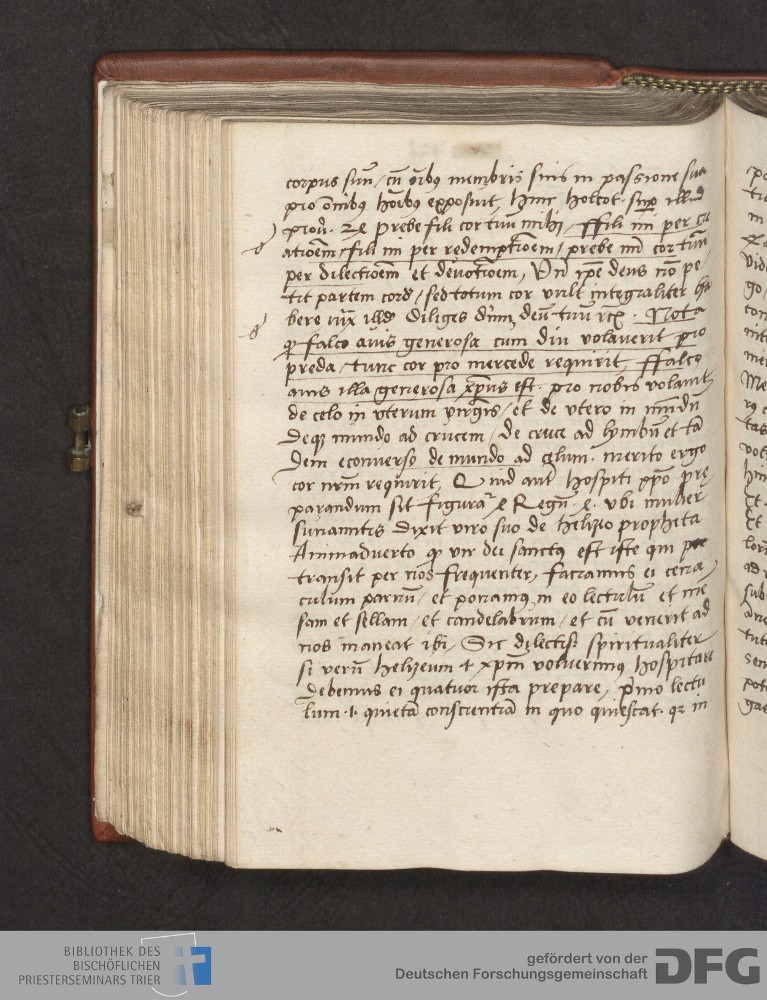 corpus suū / cū oībꝰ membris suis in passione sua
pro oīnibꝰ hoībꝰ exposuit, hinc holcot. sup illud
prebe fili cor tuū mihi / ffili mi per
atioēm / fili mi per redemptioēm / prebe mi cor tuū
per dilectioēm et deuotioēm, Vn̄ xp̄e deus nō pe
tit partem / sed totum cor vult integraliter ha
bere iux illud Diliges dn̄m deū tuū . Nota
ꝙ falco auis generosa cum diu volauerit pro
preda / tunc cor pro mercede requirit, ffalco
auis illa generosa xp̄us est . pro nobis volauit
de celo in vterum virgīs / et de vtero in mūdū
Deqꝫ mundo ad crucem / de cruce ad lymbū et tā
dem econuerso de mundo ad celum . merito ergo
cor nr̄m requirit, Quid aut hospiti xp̄o pre
parandum sit figura Regū . vbi mulier
sunamitis dixit viro suo de helizeo propheta
Animaduerto ꝙ vir dei sanctꝰ est iste qui
transit per nos frequenter, faciamus ei cena
culum paruū / et ponamꝰ in eo lectulū et me
sam et sellam / et candelabrum / et cū venerit ad
nos maneat ibi / Sic dilectis: spiritualiter
si verū helizeum xp̄m voluerimꝰ hospitare
debemus ei quatuor ista prepare, primo lectu
lum .i. quietā conscientiā in quo quiescat . qꝛ in
BIBLIOTHEK DES
BISCHÖFLICHEN
PRIESTERSEMINARS TRIER
gefördert von der
Deutschen Forschungsgemeinschaft
DFG